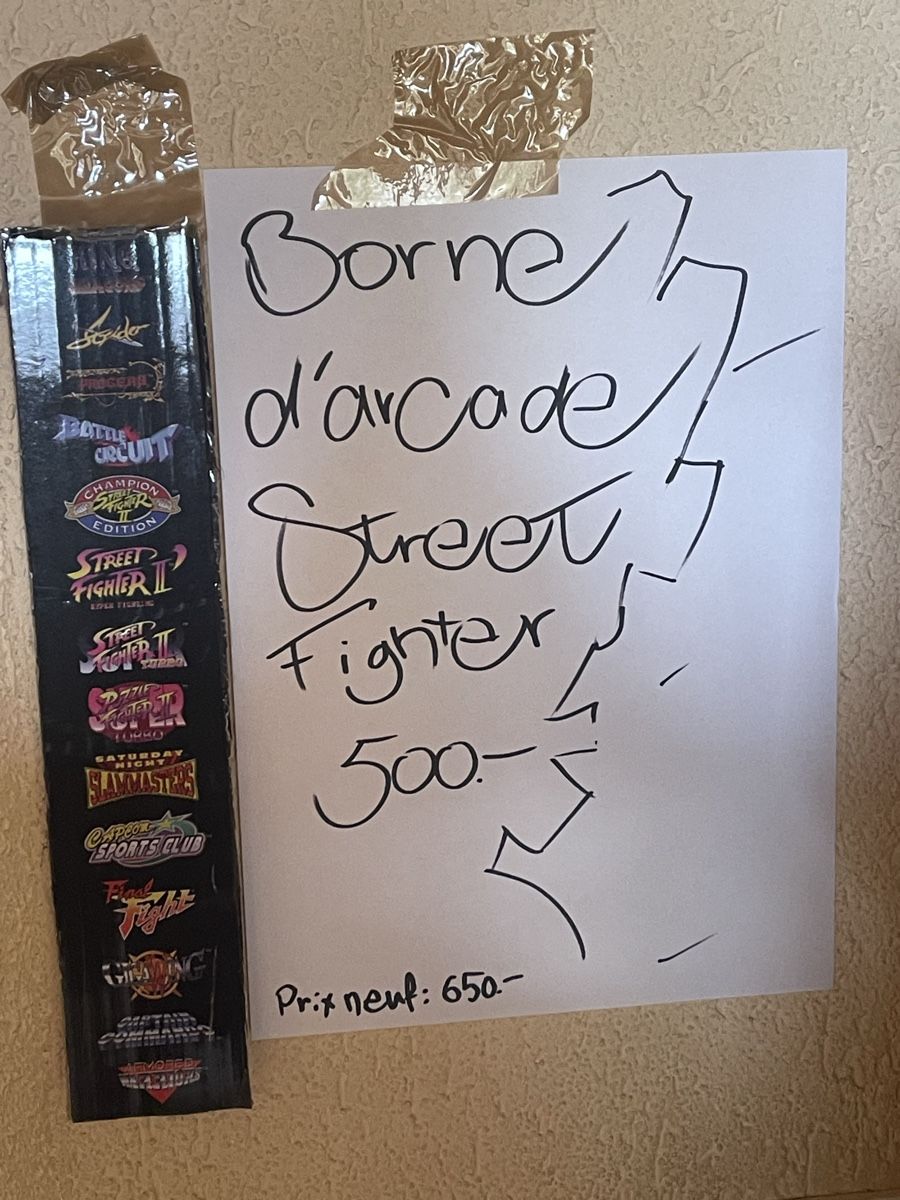 Strider
PROGEAR
BATTLE
CIRCUIT
CHAMPION
STREET
FIGHTER
II
EDITION
STREET
FIGHTER II'
HYPER FIGHTING
STREET
FIGHTER II
TURBO
SUPER
PUZZLE
FIGHTER II
TURBO
SATURDAY
NIGHT
SLAMMASTERS
CAPCOM
SPORTS CLUB
Final
Fight
GIGAWING
ARMORED
WARRIORS
Borne
d'arcade
Street
Fighter
500.-
Prix neuf: 650.-